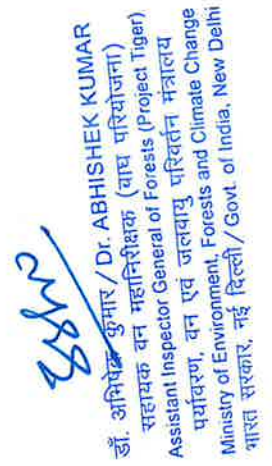 डॉ. अभिषेक कुमार / Dr. ABHISHEK KUMAR
सहायक वन महानिरीक्षक (बाघ परियोजना)
Assistant Inspector General of Forests (Project Tiger)
पर्यावरण, वन एवं जलवायु परिवर्तन मंत्रालय
Ministry of Environment, Forests and Climate Change
भारत सरकार, नई दिल्ली / Govt. of India, New Delhi